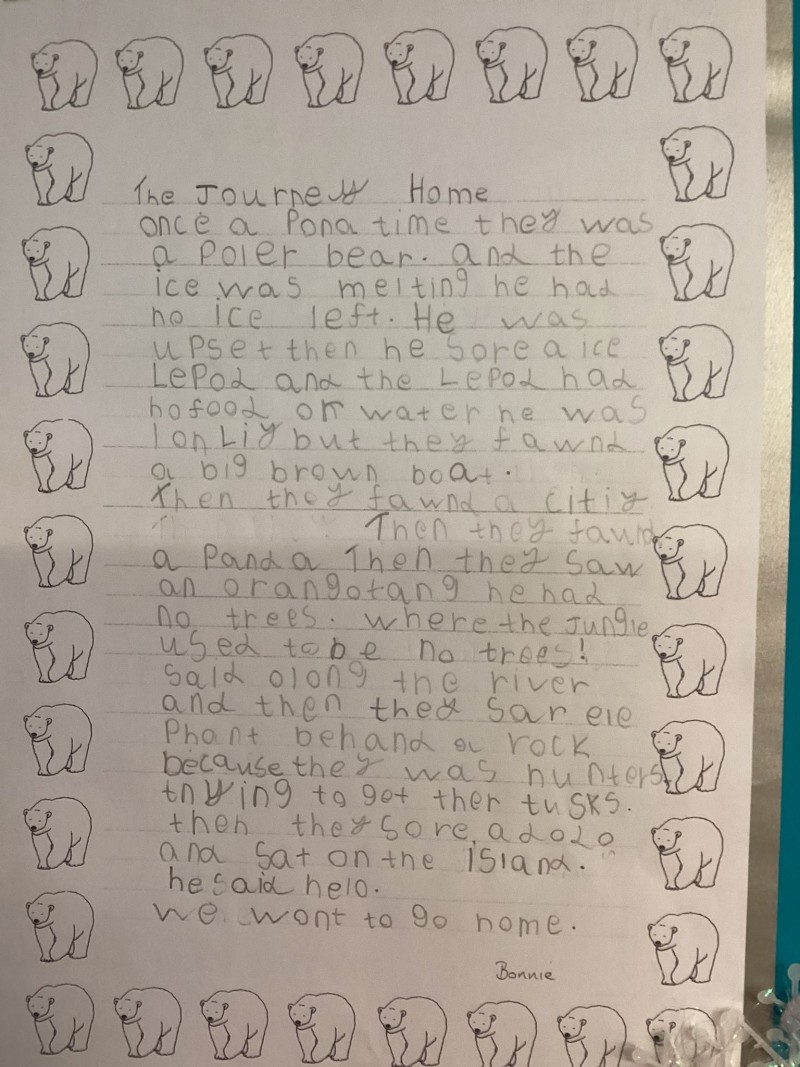 The Journey Home
once a Pona time they was
a Poler bear. and the
ice was melting he had
no ice left. He was
upset then he sore a ice
LePod and the LePod had
no food or water he was
lonLiy but they fawnd
a big brown boat.
then they fawnd a citiy
Then they faund
a Panda Then they saw
an orangotang he had
no trees. where the Jungle
used to be no trees!
said olong the river
and then they sar ele
Phant behand a rock
because they was hunters
trying to got ther tusks.
then they sore a dodo
and sat on the island.
he said helo.
we wont to go home.
Bonnie